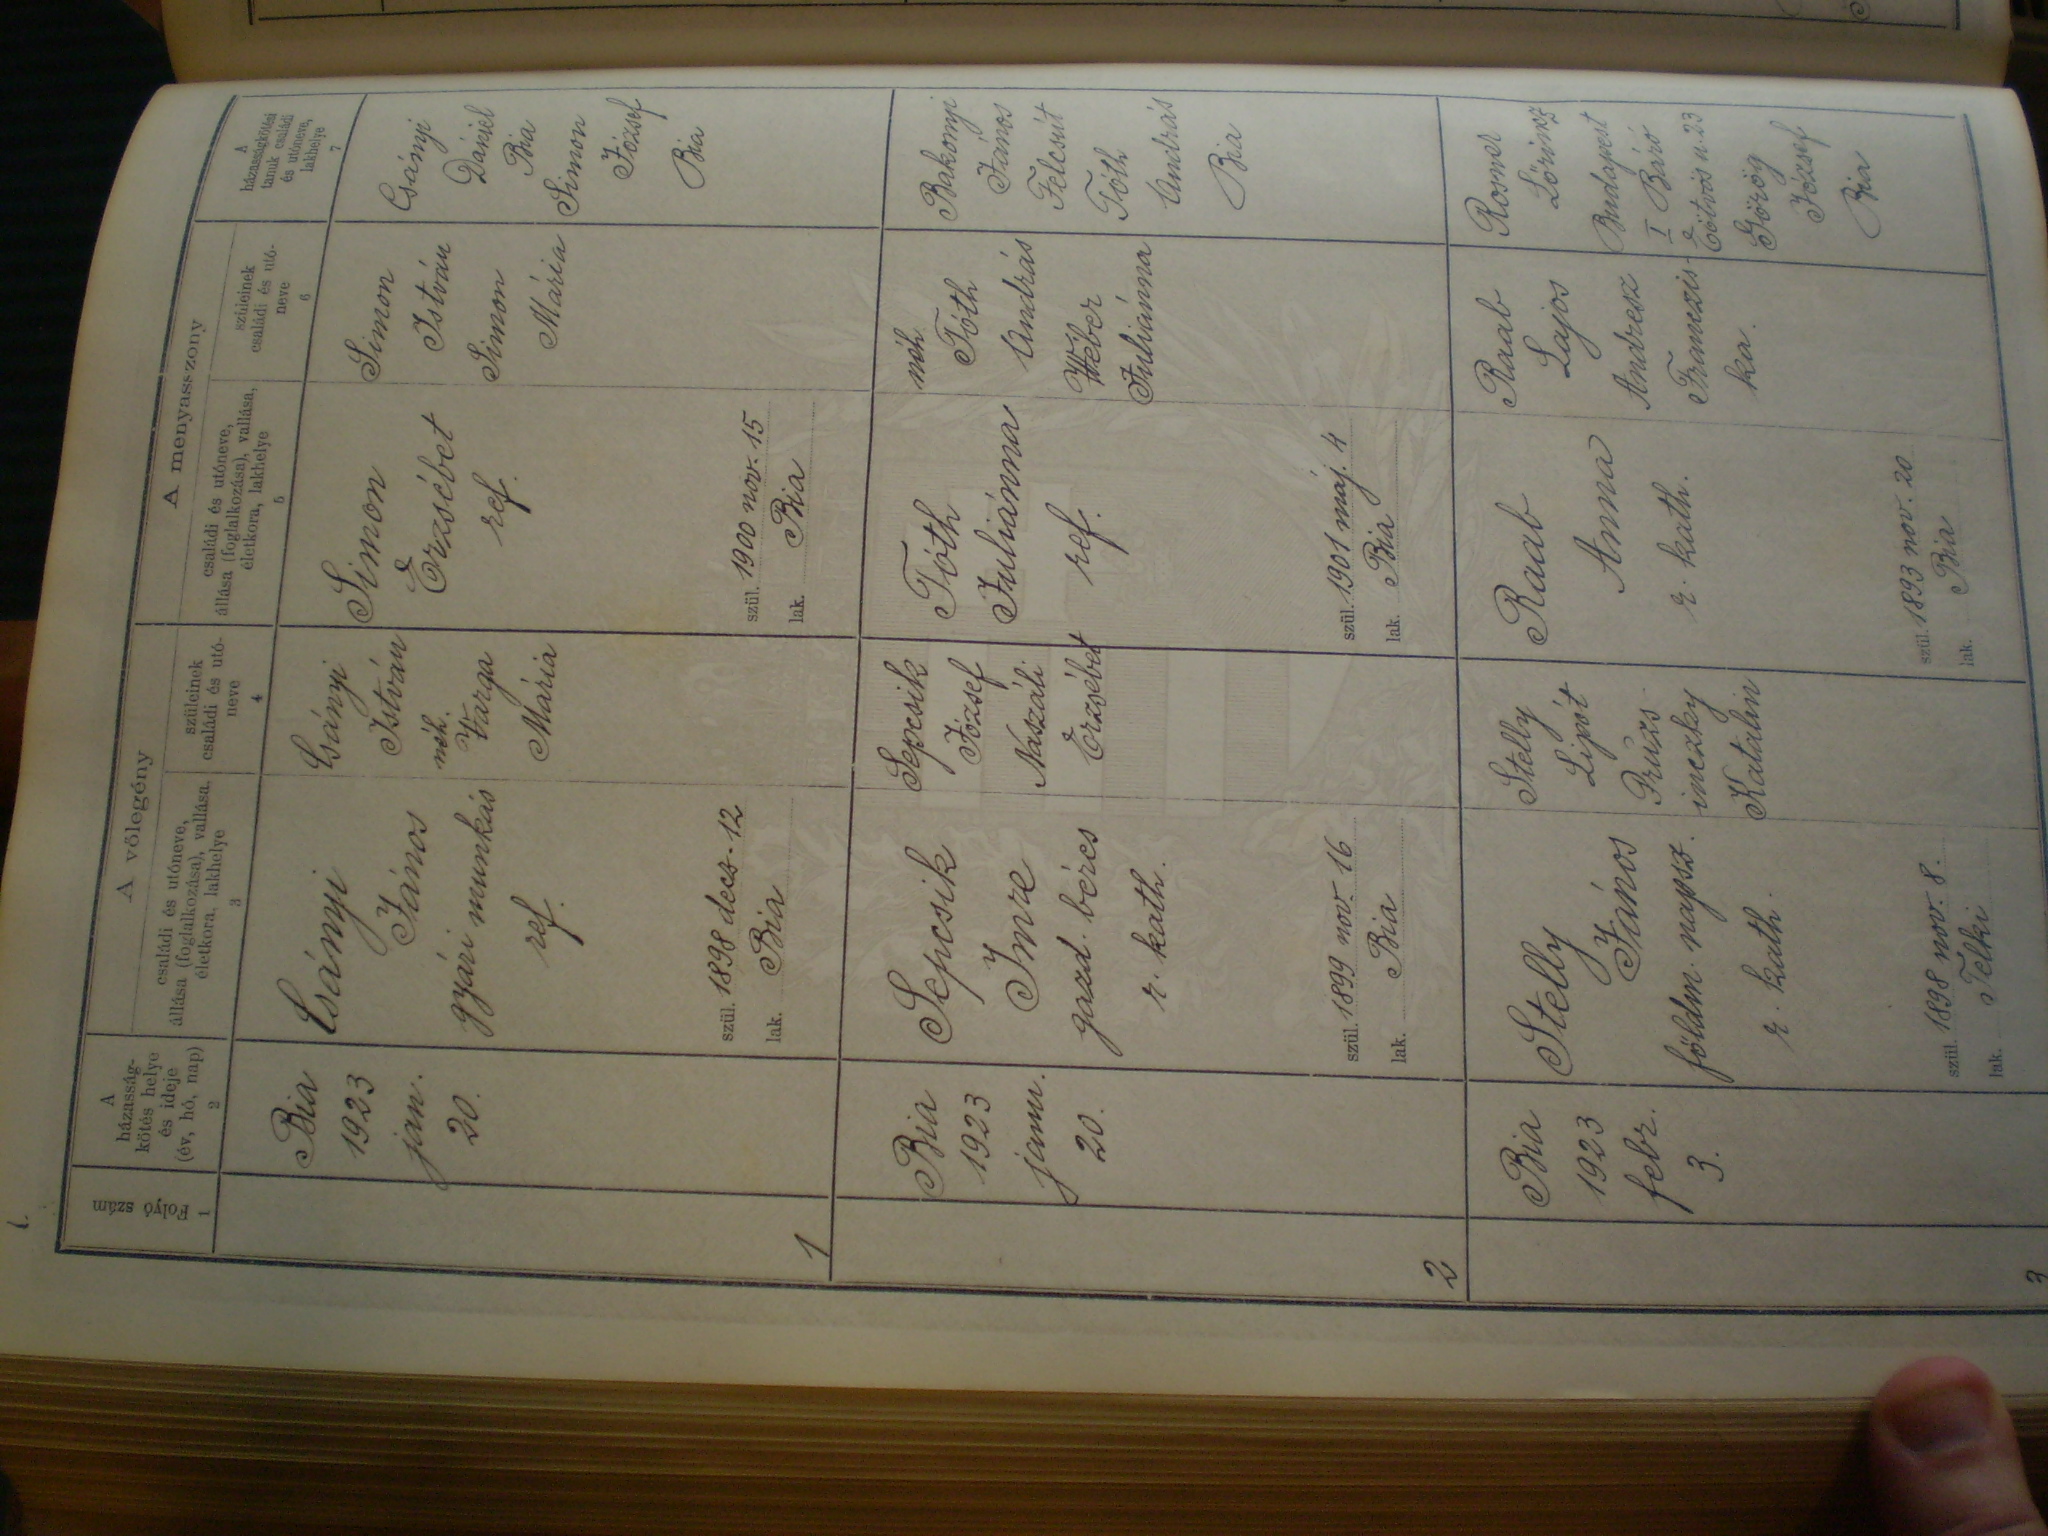 1.
Folyó szám
1
A
házasság-
kötés helye
és ideje
(év, hó, nap)
2
A vőlegény
családi és utóneve,
állása (foglalkozása), vallása,
életkora, lakhelye
3
szüleinek
családi és utó-
neve
4
A menyasszony
családi és utóneve,
állása (foglalkozása), vallása,
életkora, lakhelye
5
szüleinek
családi és utó-
neve
6
A
házasságkötési
tanuk családi
és utóneve,
lakhelye
7
1
Bia
1923
jan.
20.
Csányi
János
gyári munkás
ref.
szül. 1898 decz. 12
lak. Bia
Csányi
István
néh.
Varga
Mária
Simon
Erzsébet
ref.
szül. 1900 nov. 15
lak. Bia
Simon
István
Simon
Mária
Csányi
Dániel
Bia
Simon
József
Bia
2
Bia
1923
jann.
20.
Sepcsik
Imre
gazd. béres
r. kath.
szül. 1899 nov. 16
lak. Bia
Sepcsik
József
Naszáli
Erzsébet
Tóth
Juliánna
ref.
szül. 1901 máj. 4
lak. Bia
néh.
Tóth
András
Wéber
Juliánna
Bakonyi
János
Felcsút
Tóth
András
Bia
3
Bia
1923
febr.
3.
Stelly
János
földm. napsz.
r. kath.
szül. 1898 nov. 8.
lak. Telki
Stelly
Lipót
Pruzs-
inczky
Katalin
Raab
Anna
r. kath.
szül. 1893 nov. 20
lak. Bia
Raab
Lajos
Andresz
Franczis-
ka.
Rosner
Lőrincz
Budapest
I Báró
Eötvös u. 23
Görög
József
Bia